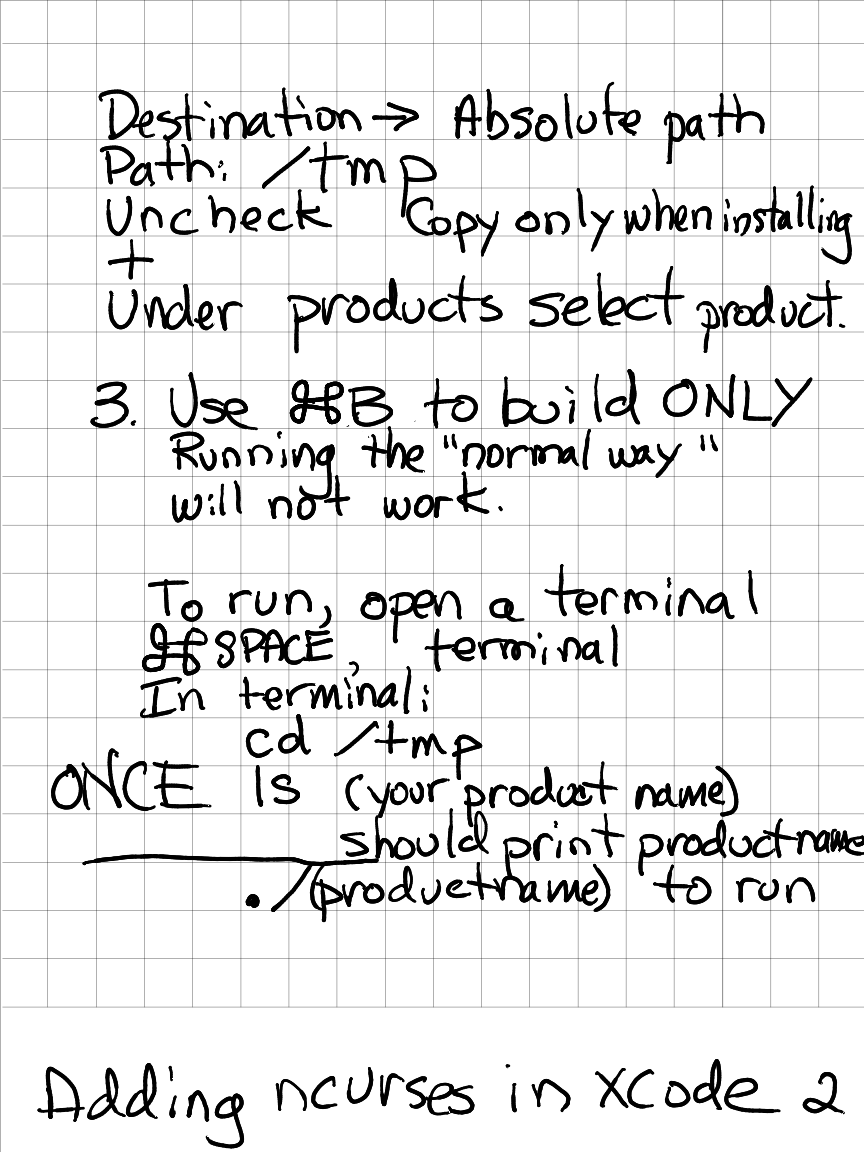 Destination → Absolute path
Path: /tmp
Uncheck Copy only when installing
+
Under products select product.
3. Use ⌘B to build ONLY
Running the "normal way"
will not work.
To run, open a terminal
⌘ SPACE, terminal
In terminal:
cd /tmp
ONCE ls (your product name)
should print productname
./(productname) to run
Adding ncurses in XCode 2